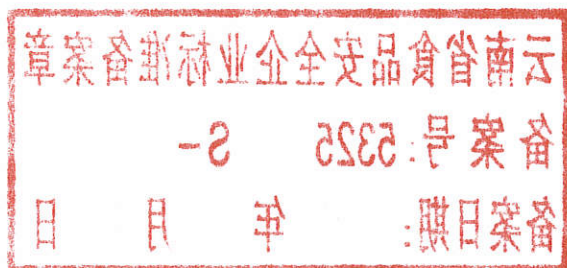 云南省食品安全企业标准备案章
备案号:5325 S-
备案日期: 年 月 日